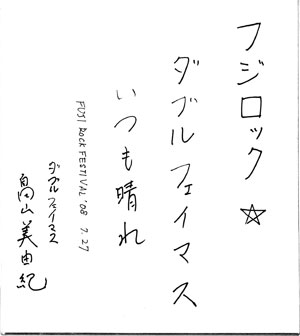 フジロック☆
ダブルフェイマス
いつも晴れ
FUJI ROCK FESTIVAL '08 7.27
ダブルフェイマス
畠山美由紀